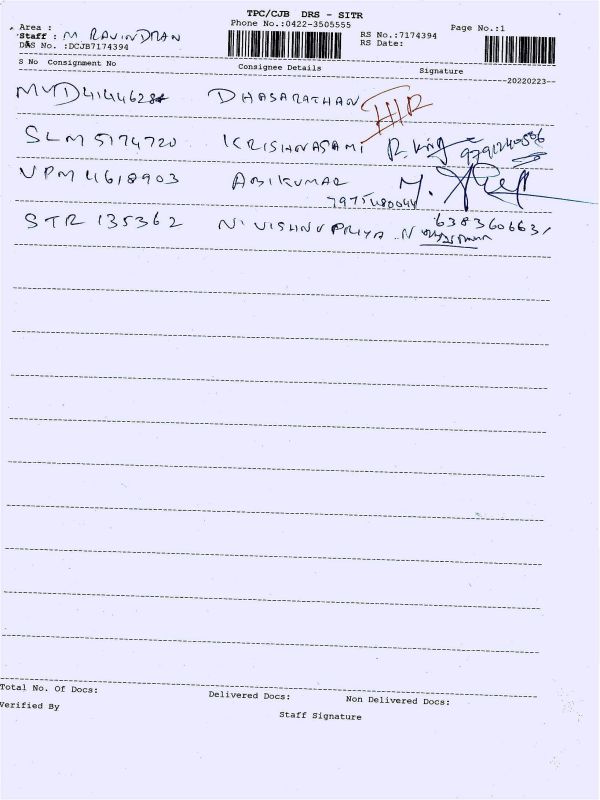 TPC/CJB DRS - SITR
Phone No.:0422-3505555
Area :
Staff : M RAVINDRAN
DRS No. :DCJB7174394
RS No.:7174394
RS Date:
Page No.:1
S No Consignment No Consignee Details Signature
20220223
DHASARATHAN
SLM 5174720 KRISHNASAMI
VPM 4618903 ABIKUMAR
STR 135362 N. VISHNU PRIYA N 6383606631
Total No. Of Docs: Delivered Docs: Non Delivered Docs:
Verified By Staff Signature